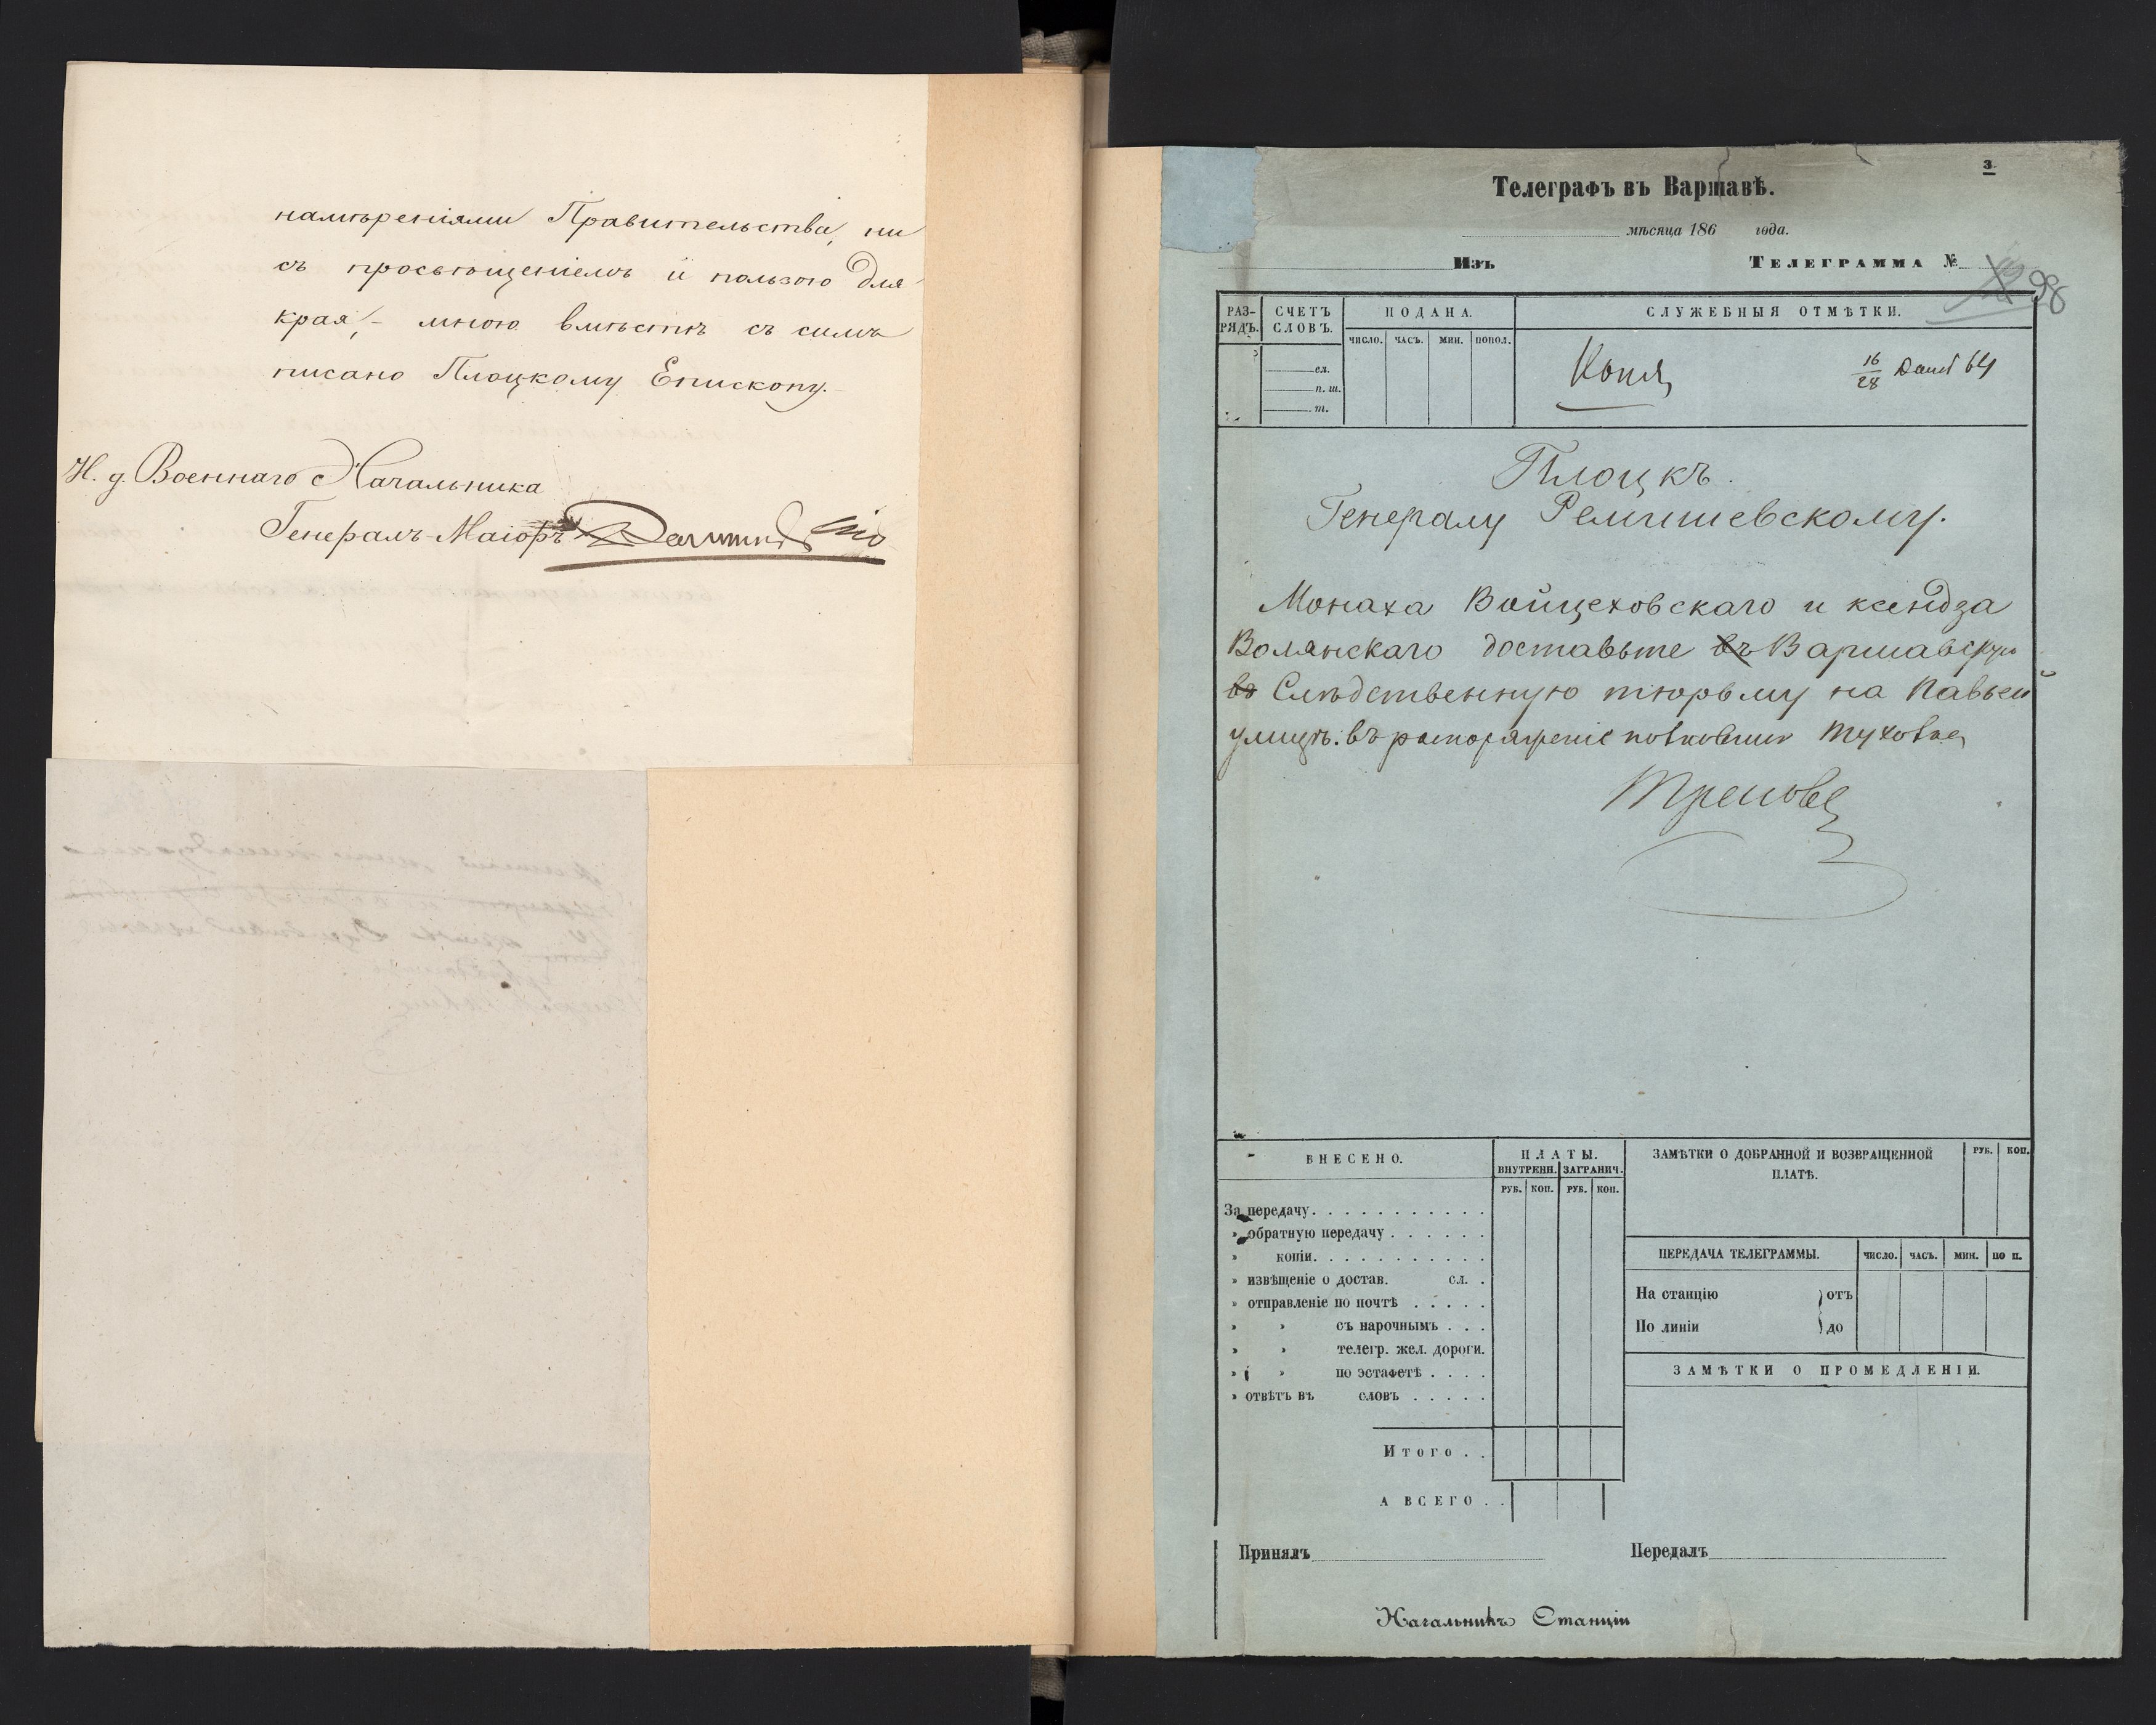 намѣреніями Правительства, ни
съ просвѣщеніемъ и пользою для
края, – мною вмѣстѣ съ симъ
писано Плоцкому Епископу.
И. д. Военнаго Начальника
Генералъ-Маіоръ
3
Телеграфъ въ Варшавѣ.
мѣсяца 186 года.
Изъ ТЕЛЕГРАММА №
98
РАЗ-РЯДЪ. СЧЕТЪ СЛОВЪ. ПОДАНА. СЛУЖЕБНЫЯ ОТМѢТКИ.
ЧИСЛО. ЧАСЪ. МИН. ПОПОЛ.
сл.
п. ш.
т.
Копія 16/28 64
Плоцкъ.
Генералу Семишевскому.
Монаха Войцеховскаго и ксендза
Волянскаго доставьте въ Варшавскую
въ Слѣдственную тюрьму на Павьей
улицѣ. въ распоряженіе полковника Тухолка
Треповъ
ВНЕСЕНО. ПЛАТЫ. ЗАМѢТКИ О ДОБРАННОЙ И ВОЗВРАЩЕННОЙ ПЛАТѢ. РУБ. КОП.
ВНУТРЕНН. ЗАГРАНИЧ.
РУБ. КОП. РУБ. КОП.
За передачу
» обратную передачу
» копіи
ПЕРЕДАЧА ТЕЛЕГРАММЫ. ЧИСЛО. ЧАСЪ. МИН. ПО П.
» извѣщеніе о достав. сл.
На станцію } отъ
» отправленіе по почтѣ
» » съ нарочнымъ
По линіи } до
» » телегр. жел. дороги.
» » по эстафетѣ
ЗАМѢТКИ О ПРОМЕДЛЕНІИ.
» отвѣтъ въ словъ
Итого
А ВСЕГО
Принялъ Передалъ
Начальникъ Станціи